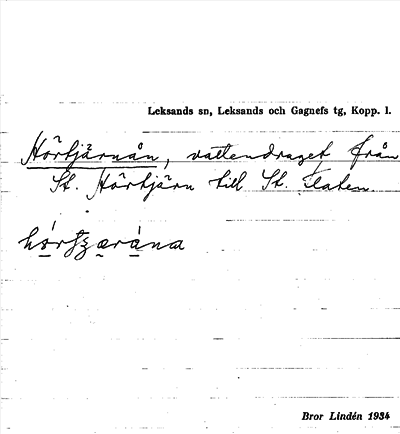 Leksands sn, Leksands och Gagnefs tg, Kopp. l.
Hörtjärnån, vattendraget från
St. Hörtjärn till St. Flaten.
Bror Lindén 1934